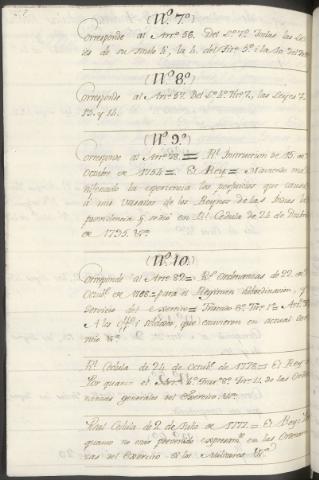 (N.º 7.º)
Corresponde al Arrº. 56. Del Lº. 7º. todas las Le-
yes de su titulo
(N.º 8.º)
Corresponde al Arrº. 57. Del Lº. tº. 7, las Leyes 7.
13. y 14.
(N.º 9.º)
Corresponde al Arrº. 78. = Rl. Instruccion de 15. de
Octubre de 1754 = El Rey = Haviendo ma-
nifestado la experiencia los perjuicios que causa
á mis vasallos de los Reynos de las Indias la
providencia q. sedió en Rl. Cedula de 24. de
en 1735. Vª.
(N.º 10.)
Corresponde al Arrº. 82 = Rs. Ordenanzas de 22. de
Octubre de 1768 = para el Regimen, y
Servicio del exercito = Tratado 8º. titº. 1º. = Art.
A los y soldados, que estuvieren en actual
Rl. Cedula de 24. de Octubre de 1778. = El Rey =
Por quanto el Trat. 8º. Tit. 11. de las Orde-
nanzas generales del Exercito. Vª.
Real Cedula de 2. de Julio de 1777. = El Rey. Por
quanto no está prevenido expresamte. en las Ordenan-
zas del exercito Militares Vª.